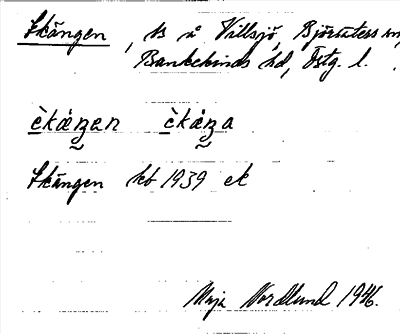 Ekängen, ts å Villsjö, Björsäters sn,
Bankekinds hd, Östg. l.
èkáŋen èkáŋa
Ekängen kb 1939 ek
Maja Nordlund 1946.